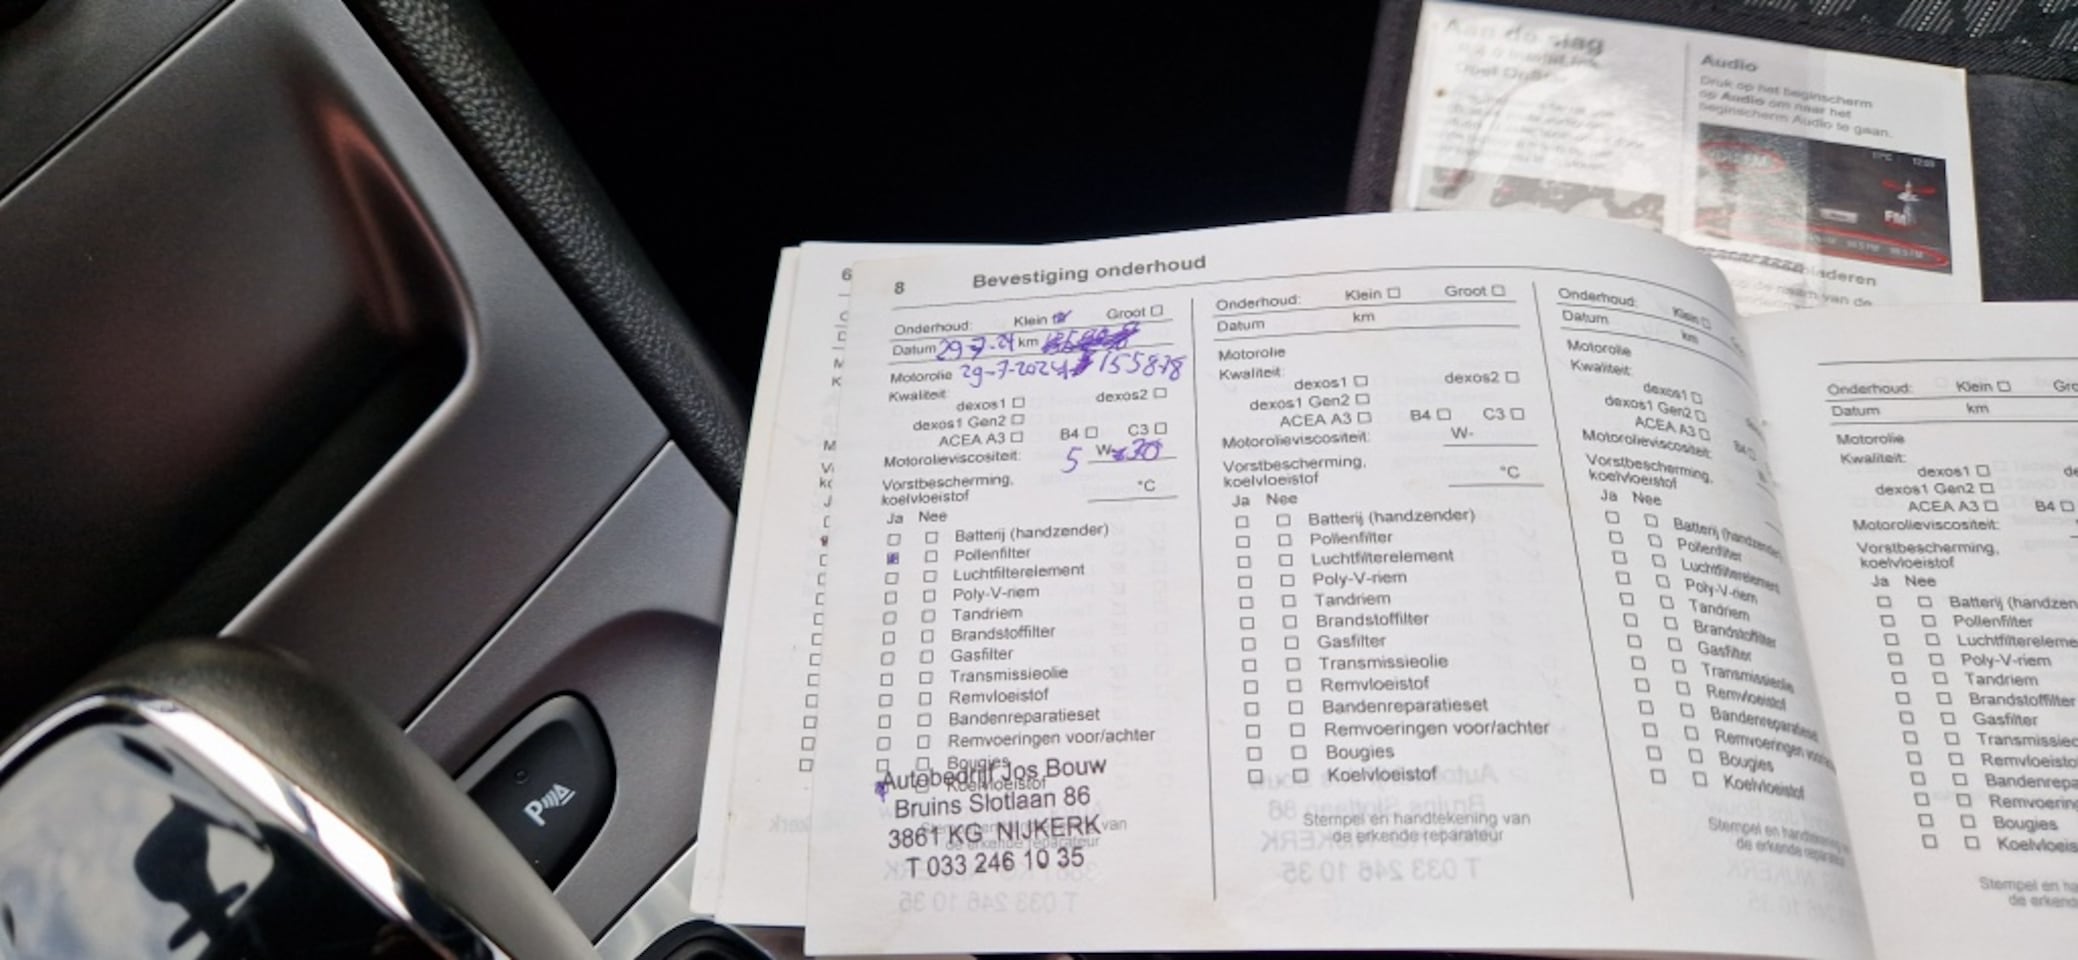 Aan de slag
Audio
Druk op het beginscherm
op Audio om naar het
beginscherm Audio te gaan.
FM
8 Bevestiging onderhoud
Onderhoud: Klein Groot
Datum 29-7-24 km
Motorolie 29-7-2024 155878
Kwaliteit:
dexos1 dexos2
dexos1 Gen2
ACEA A3 B4 C3
Motorolieviscositeit: 5 W-30
Vorstbescherming,
koelvloeistof °C
Ja Nee
Batterij (handzender)
Pollenfilter
Luchtfilterelement
Poly-V-riem
Tandriem
Brandstoffilter
Gasfilter
Transmissieolie
Remvloeistof
Bandenreparatieset
Remvoeringen voor/achter
Bougies
Koelvloeistof
Autobedrijf Jos Bouw
Bruins Slotlaan 86
3861 KG NIJKERK
T 033 246 10 35
Onderhoud: Klein Groot
Datum km
Motorolie
Kwaliteit:
dexos1 dexos2
dexos1 Gen2
ACEA A3 B4 C3
Motorolieviscositeit: W-
Vorstbescherming,
koelvloeistof °C
Ja Nee
Batterij (handzender)
Pollenfilter
Luchtfilterelement
Poly-V-riem
Tandriem
Brandstoffilter
Gasfilter
Transmissieolie
Remvloeistof
Bandenreparatieset
Remvoeringen voor/achter
Bougies
Koelvloeistof
Stempel en handtekening van
de erkende reparateur
Onderhoud: Klein
Datum km
Motorolie
Kwaliteit:
dexos1
dexos1 Gen2
ACEA A3 B4
Motorolieviscositeit:
Vorstbescherming,
koelvloeistof
Ja Nee
Batterij (handzender)
Pollenfilter
Luchtfilterelement
Poly-V-riem
Tandriem
Brandstoffilter
Gasfilter
Transmissieolie
Remvloeistof
Bandenreparatieset
Remvoeringen
Bougies
Koelvloeistof
Stempel en
de erkende
Onderhoud: Klein
Datum km
Motorolie
Kwaliteit:
dexos1
dexos1 Gen2
ACEA A3 B4
Motorolieviscositeit:
Vorstbescherming,
koelvloeistof
Ja Nee
Batterij (handzen
Pollenfilter
Luchtfiltereleme
Poly-V-riem
Tandriem
Brandstoffilter
Gasfilter
Transmissieo
Remvloeisto
Bandenrepa
Remvoering
Bougies
Koelvloeis
Stempel en ha
de erkend
P